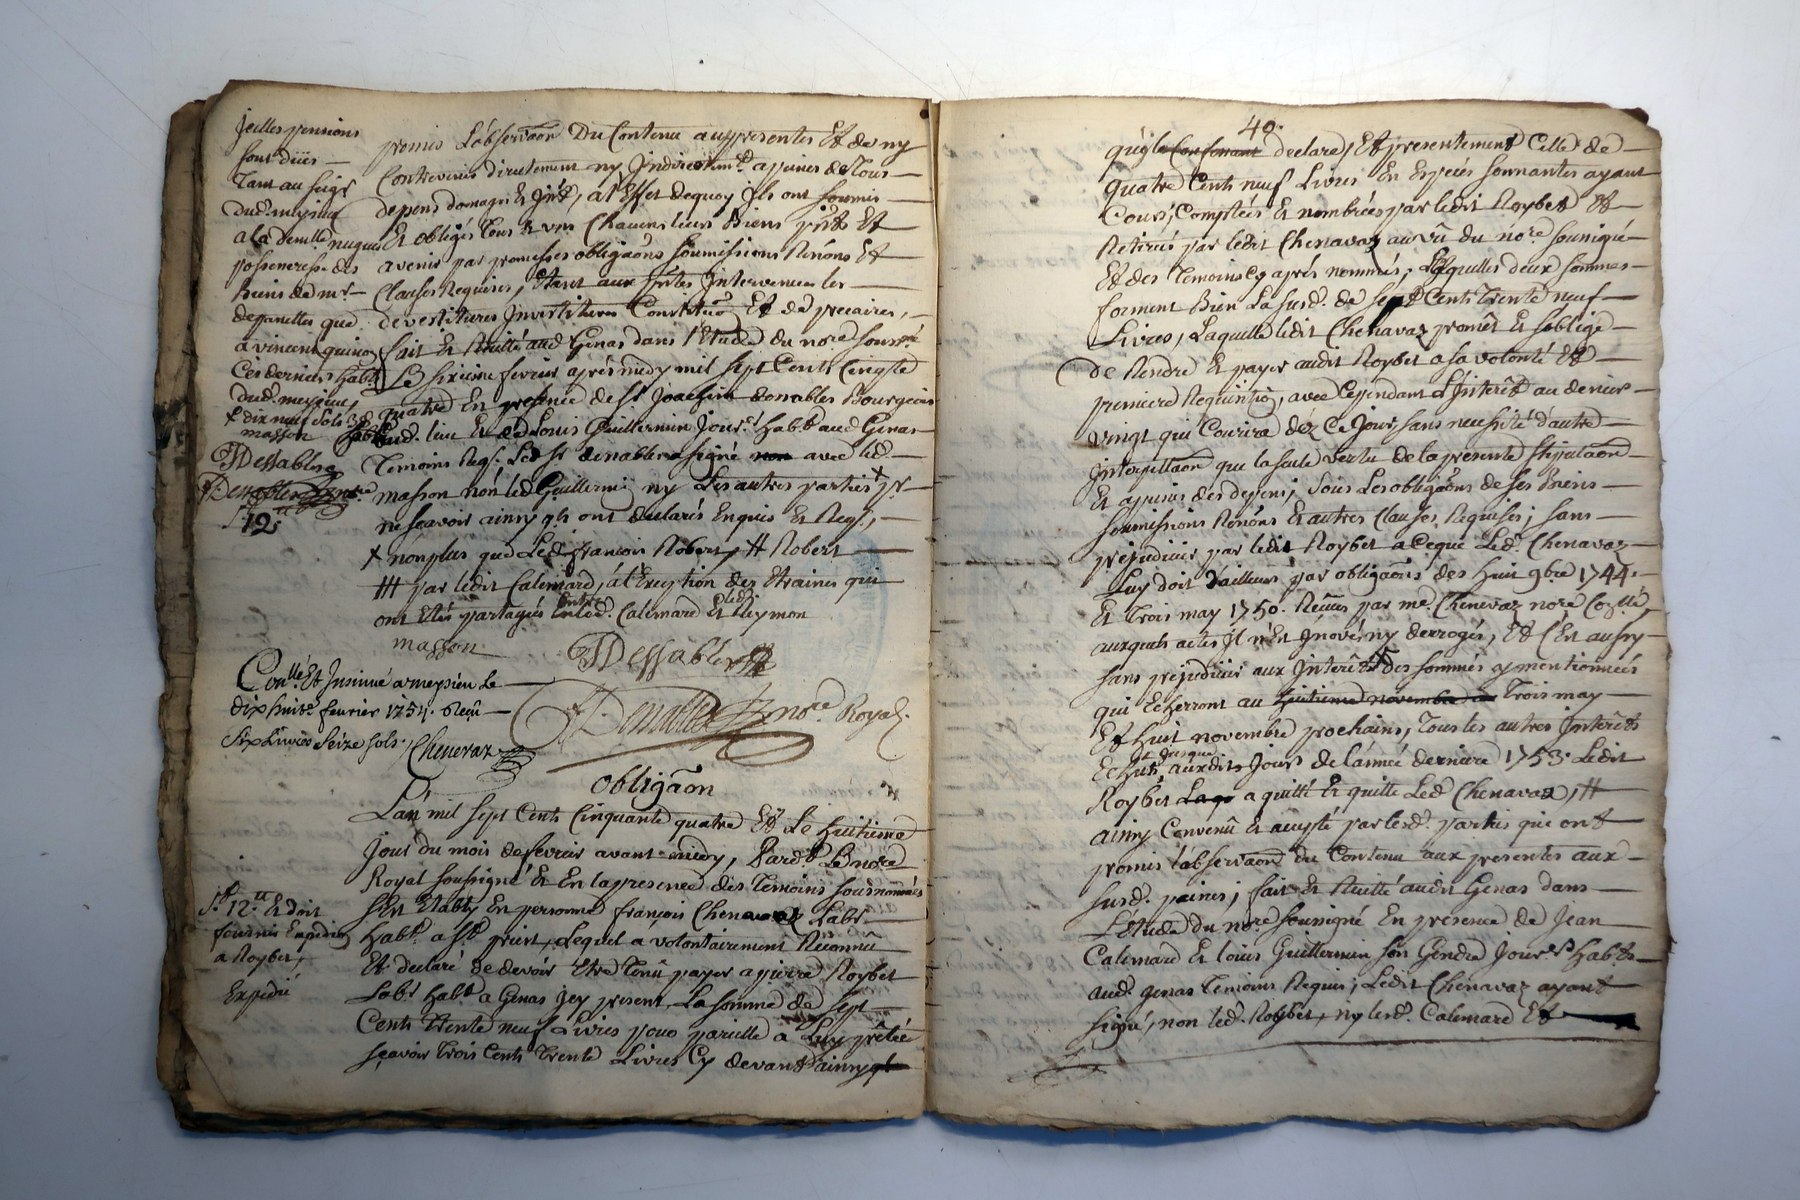 Jcelles pensions
sont dües
Tant au seigr
dud. meyzieu
a la demlle nuques
posseneresse des
biens de mr
dessanettes que
a vincent quinoz
Ces derniers habts
dud. meyzieux
x dix neuf sols 3d
masson
DDessables
Denables nore
12s
promis L'observaõn Du Contenu aux presentes Et de ny
Contrevenir directement ny Jndirectemt. a peines de Tous
depens domages Et Jnts, a l'Effet dequoy Jls ont soumis
Et obligés Tous Et uns Chacuns leurs Biens pnts Et
avenir par promesses obligaõns soumissions Renõns Et
Clauses Requises, Etant aux sustes Jntervenues les
devestitures Jnvestitures Constituõ Et de precaires,
fait Et Recitté aud Genas dans l'Etude du nore soussné
Le sixieme fevrier aprés midy mil sept Cents Cinqte
quatre En presence de sr Joachim denables Bourgeois
dud. lieu Et de Louis Guillermin Jourr habt. aud Genas
Temoins Reqs. Led sr denables signé non avec led.
masson nón led Guillermin ny Les autres parties x pr
ne scavoir ainsy qls ont declarés Enquis Et Reqs,
x nonplus que Led. francois Robert, # Robert
### par ledit Calemard, a l'Exception des Etraines qui
ont Etés partagés Entre led. Calemard Et led. Reymon
masson
DDessables
Denables nore Royal.
Conllé Et Jnsinué a meyzieu Le
dix huite. fevrier 1754. Reçu
six Livres seize sols, Chenevaz
Obligaõn
L'an mil sept Cents Cinquante quatre Et Le huitieme
Jour du mois de fevrier avant midy, Pardt. Le nore
Royal soussigné Et En la presence des Temoins sousnommés
s'Est Etably En personne françois Chenavaz Labr.
habt. a st. priest, Lequel a volontairement Reconnu
Et declaré de devoir Etre Tenû payer a pierre Roybet
Labr habt a Genas Jcy present La somme de sept
Cents Trente neuf Livres pour pareille a Luy prêtée
sçavoir Trois Cents Trente Livres Cy devant ainsy
12s Et doit
fournir Expediõn
a Roybet,
Expedié
49.
qu'ils le Confessant declare, Et presentement Celle de
quatre Cents neuf Livres En Espéces sonnantes ayant
Cours, Comptées Et nombrées par ledit Roybet Et
Retirées par ledit Chenavaz au vû du nore. soussigné
Et des Temoins Cy aprés nommés, Lesquelles deux sommes
forment Bien La susd. de sept Cents Trente neuf
Livres, Laquelle ledit Chenavaz promêt Et s'oblige
de Rendre Et payer audit Roybet a sa volonté Et
premiere Requisition, avec Cependant L'Jnterêt au denier
vingt qui Courira déz Ce Jour sans necessité d'autre
Jnterpellaõn que la seule vertu de la presente stipulaõn
Et a peines des depens, sous Les obligaõns de ses Biens
soumissions Renõns Et autres Clauses Requises, sans
préjudicier par ledit Roybet a Ceque Led. Chenavaz
Luy doit d'ailleurs par obligaõns des huit 9bre 1744.
Et Trois may 1750. Reçues par me. Chenevaz nore
auxquels actes Jl n'Est Jnové ny derrogés, Et s'Est aussy
sans prejudicier aux Jnterêts des sommes y mentionnées
qui Echerront au huitieme novembre Trois may
Et huit novembre prochains, Tous les autres Jnterêts
Echus Jusque auxdits Jours de L'année derniere 1753. Ledit
Roybet a quitté Et quitte Led Chenavaz, #
ainsy Convenû Et accepté par lesd. parties qui ont
promis l'observaõn du Contenu aux presentes aux
susd. peines, fait Et Recitté audit Genas dans
L'Etude du nore soussigné En presence de Jean
Calemard Et Louis Guillermin son Gendre Jourrs habts
aud. genas Temoins Requis, Ledit Chenavaz ayant
signé, non led. Roybet, ny lesd. Calemard Et